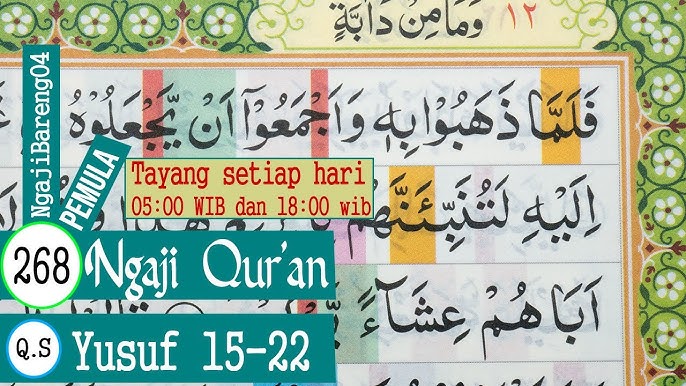 ١٢ وَمَا مِنْ دَآبَّةٍ
فَلَمَّا ذَهَبُوْا بِهٖ وَاَجْمَعُوْٓا اَنْ يَّجْعَلُوْهُ
اِلَيْهِ لَتُنَبِّئَنَّهُمْ
اَبَاهُمْ عِشَاۤءً
NgajiBareng04
PEMULA
Tayang setiap hari
05:00 WIB dan 18:00 wib
268 Ngaji Qur'an
Q.S Yusuf 15-22